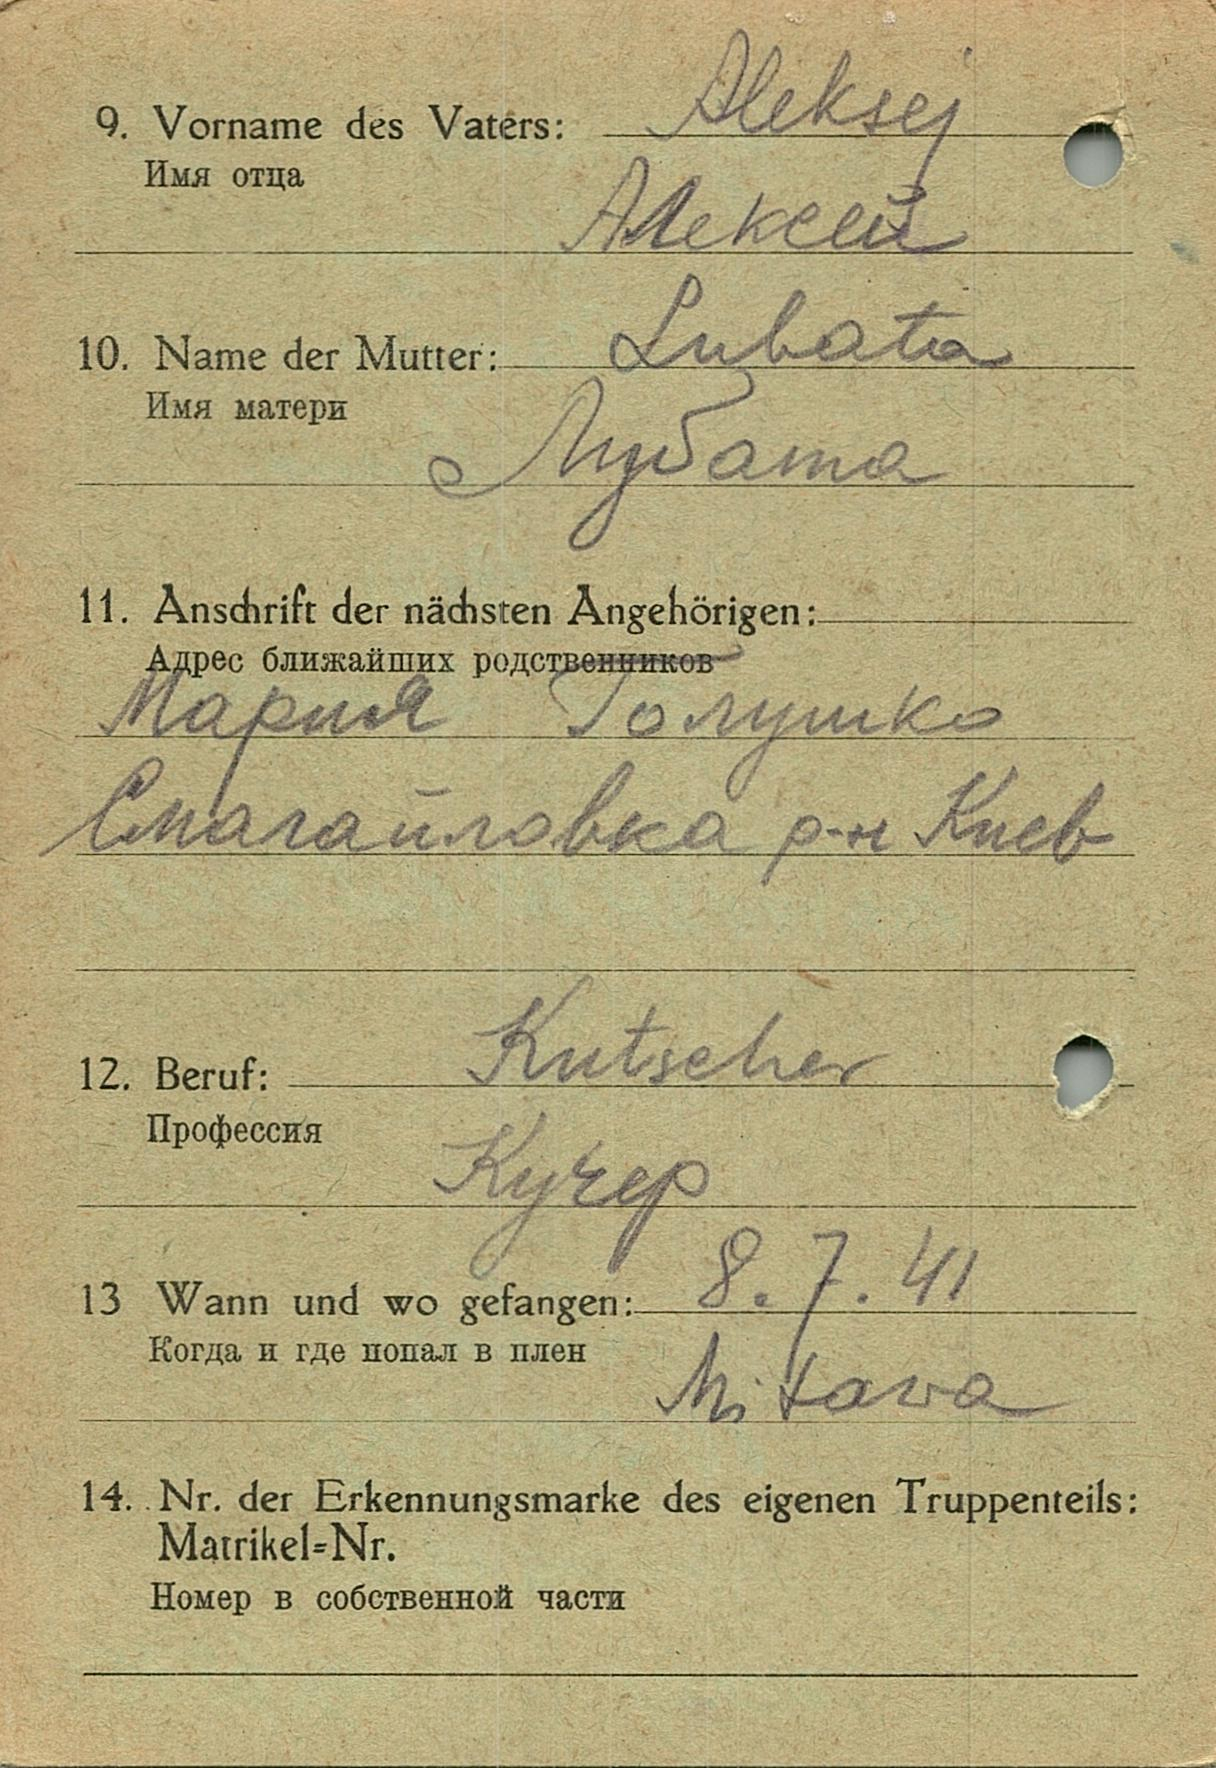 9. Vorname des Vaters: Aleksej
Имя отца
Алексей
10. Name der Mutter: Lubata
Имя матери
Лубата
11. Anschrift der nächsten Angehörigen:
Адрес ближайших родственников
Мария Голушко
Смагайловка р-н Киев
12. Beruf: Kutscher
Профессия
Кучер
13 Wann und wo gefangen: 8.7.41
Когда и где попал в плен
Mitawa
14. Nr. der Erkennungsmarke des eigenen Truppenteils:
Matrikel=Nr.
Номер в собственной части